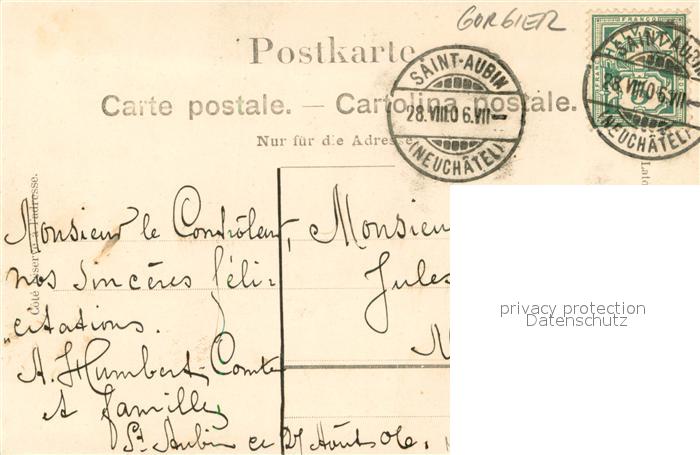 GORGIER
Postkarte
Carte postale. — Cartolina postale.
Nur für die Adresse
SAINT-AUBIN
28.VIII.06.VII—
(NEUCHÂTEL)
FRANCO
SAINT-AUBIN
28.VIII.06.VII
(NEUCHÂTEL)
Côté réservé à l'adresse.
Lato
Monsieur le Contrôleur,
nos sincères féli-
citations.
A. Humbert-Comte
et famille
St Aubin ce 27 Août 06.
Monsieu
Jules
privacy protection
Datenschutz